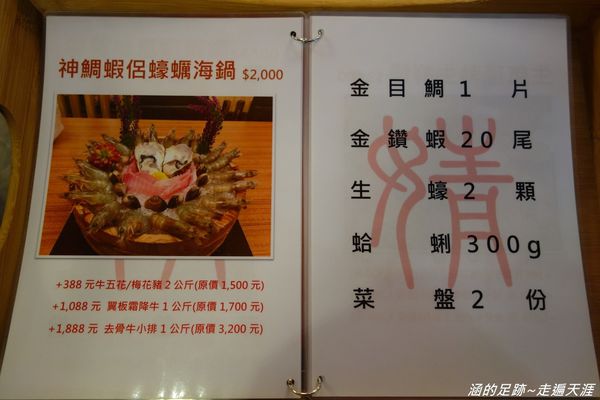 神鯛蝦侶蠔蠣海鍋 $2,000
+388 元牛五花/梅花豬 2 公斤(原價 1,500 元)
+1,088 元 翼板霜降牛 1 公斤(原價 1,700 元)
+1,888 元 去骨牛小排 1 公斤(原價 3,200 元)
金目鯛 1 片
金鑽蝦 20 尾
生蠔 2 顆
蛤蜊 300g
菜盤 2 份
婧
涵的足跡~走遍天涯